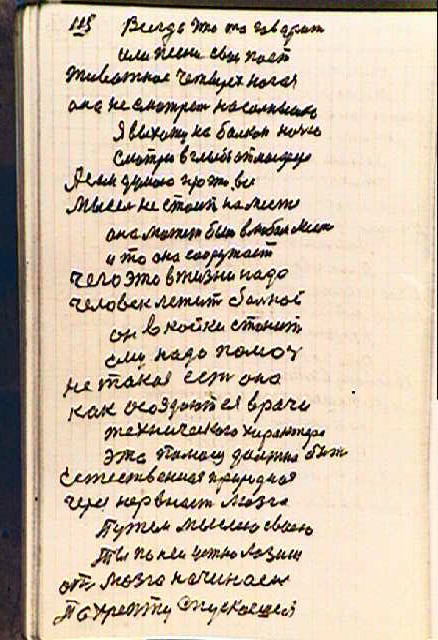 118 Всегда что то говорит
или песни свои поет
животное четырех ногая
она не смотрит на солнышко
Я выхожу на балкон ночью
смотрю в глыбь
думаю про то все
Мысль не стоит на месте
она может быть в любом месте
и то она сооружает
чего это в жизни надо
человек лежит больной
он в койки стонит
ему надо помоч
не такая ест она
как создаются врачи
технического характера
эта помощ должна быт
естественная природная
через нервност мозга
Путем мыслею своею
Ты по ней лазиш
от мозга начинаем
По хрепту спускаешся